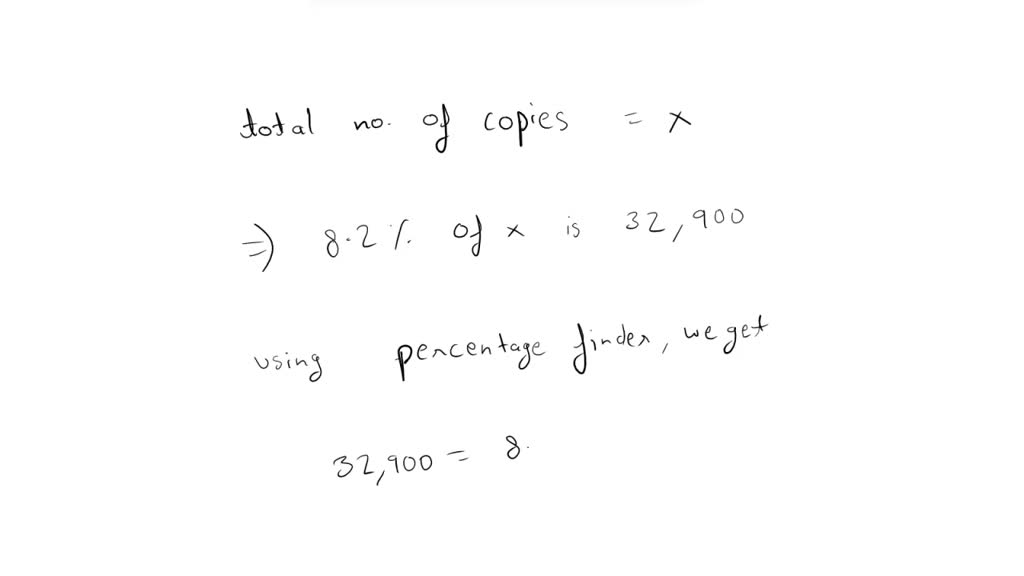 total no. of copies = x
⇒ 8.2% of x is 32,900
using percentage finder, we get
32,900 = 8.